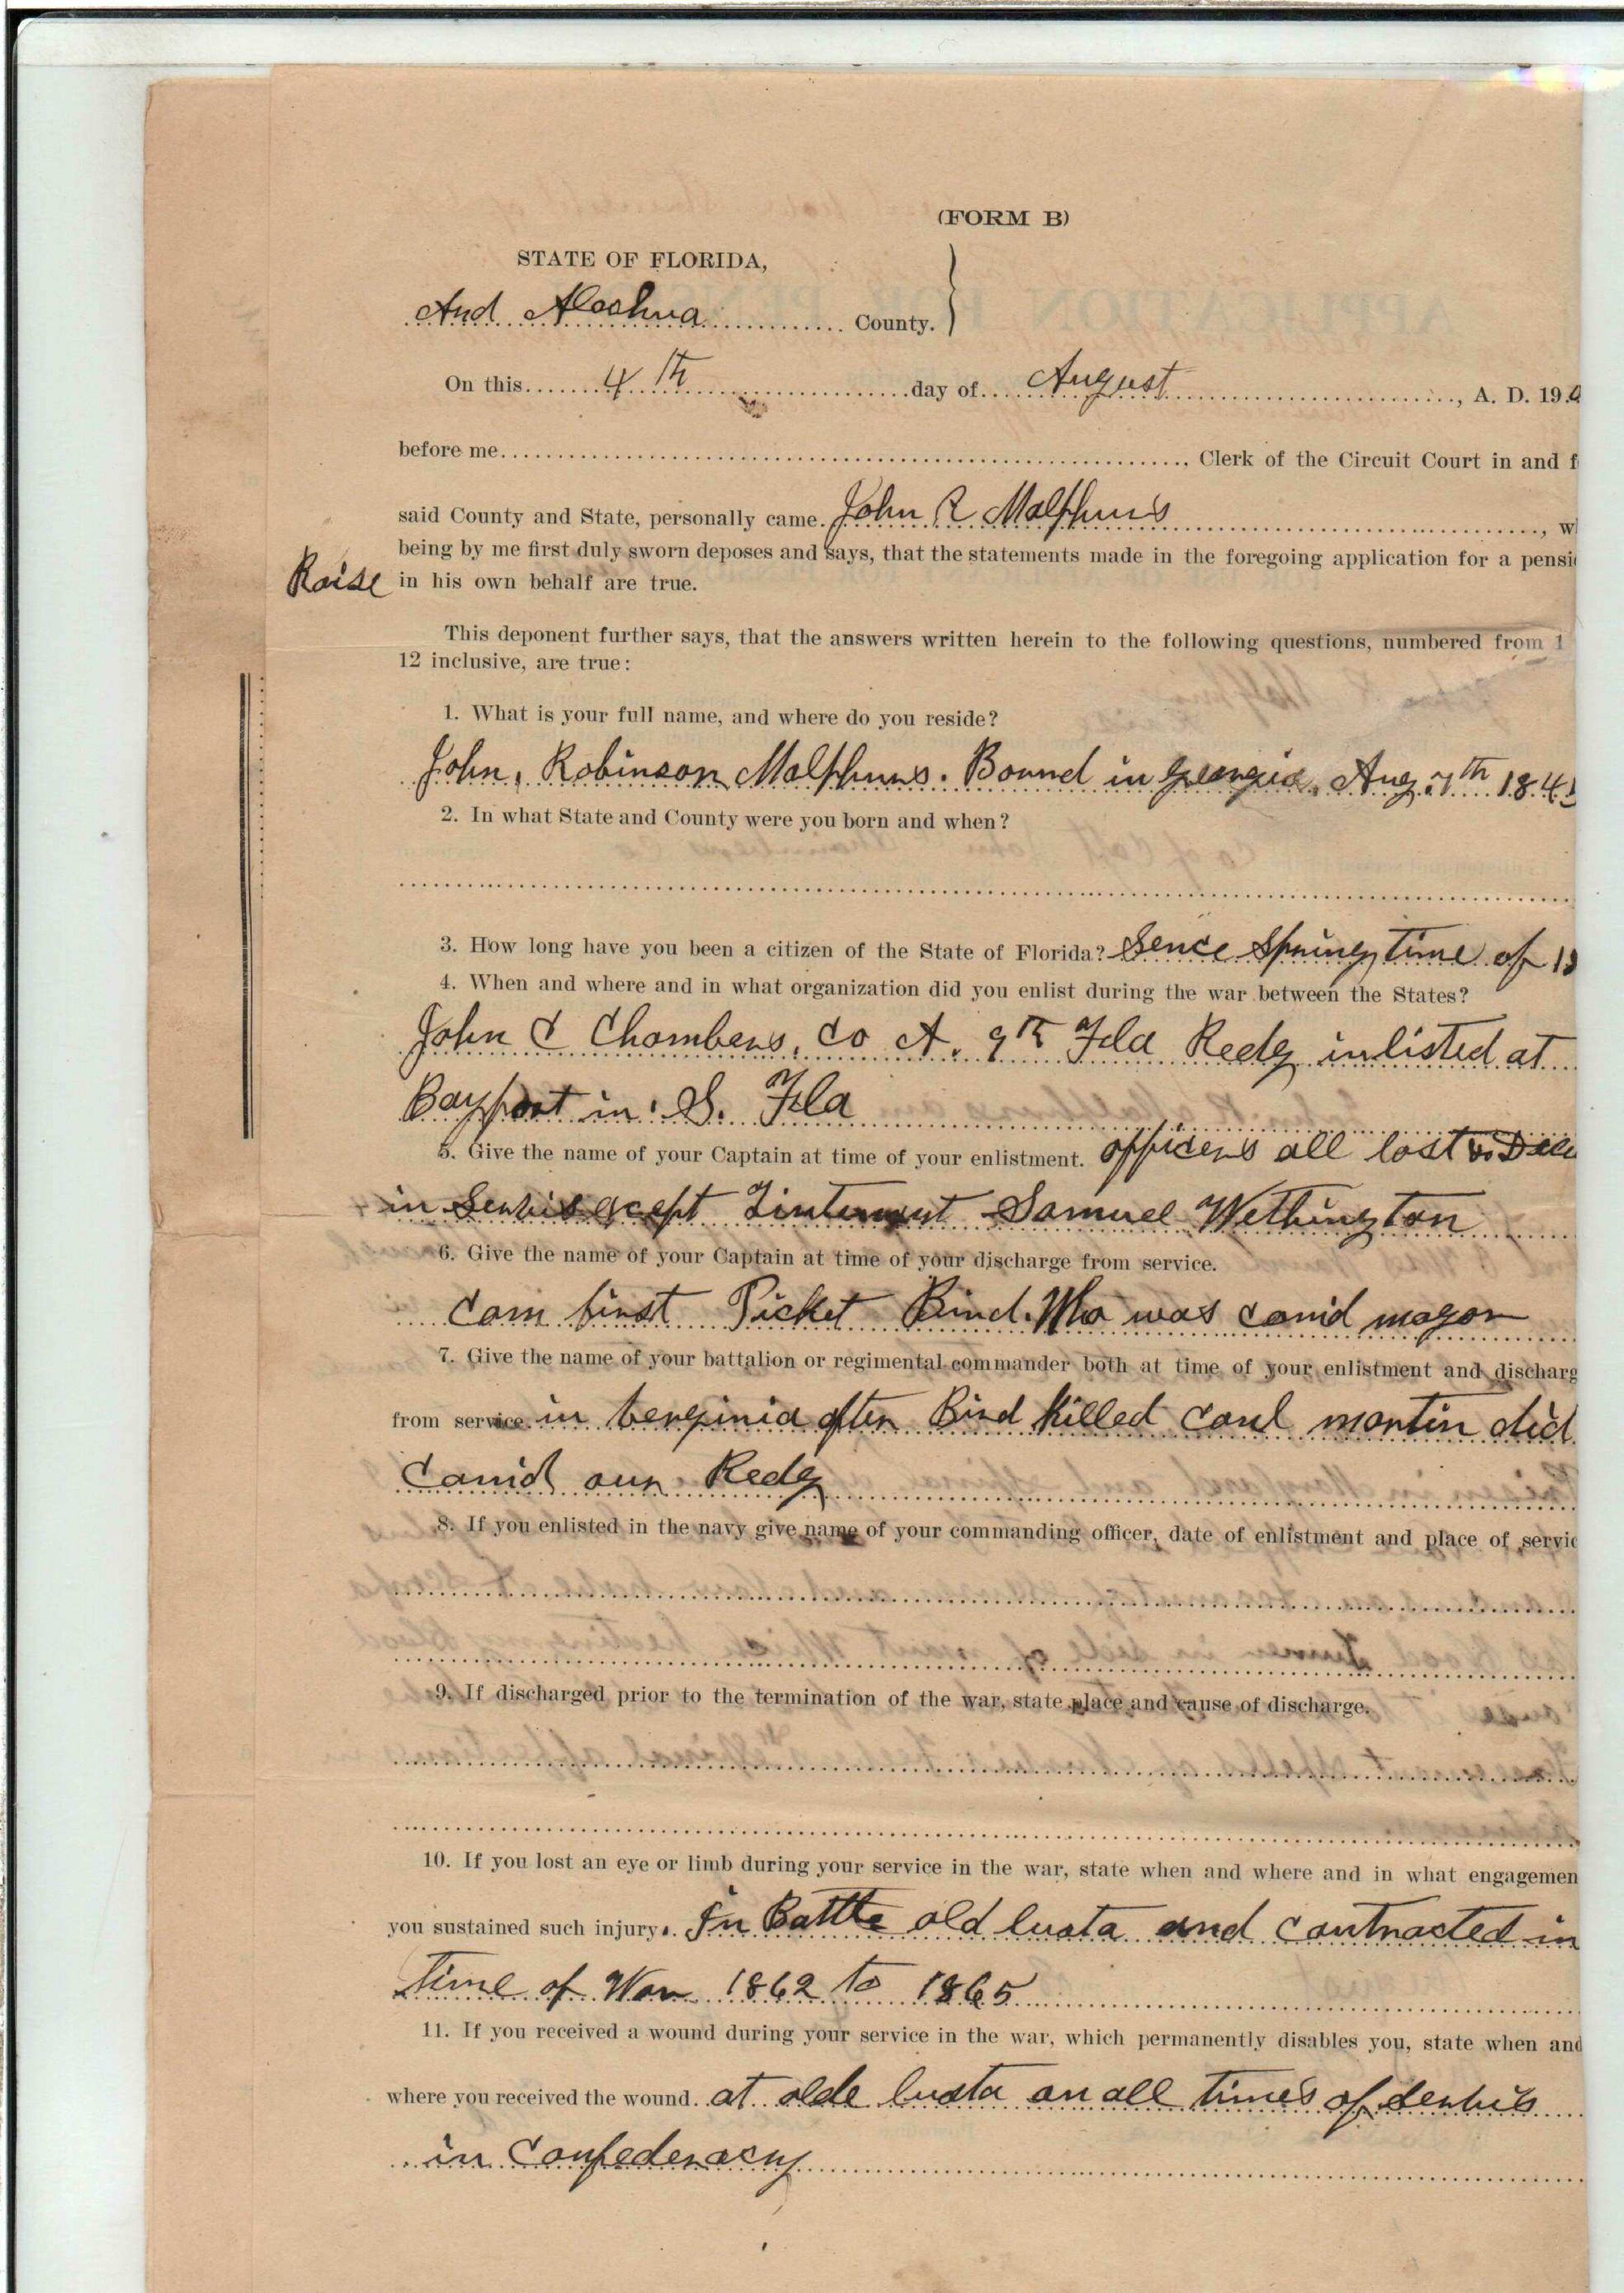 (FORM B)
STATE OF FLORIDA,
And Alachua County.
On this 4th day of August, A. D. 19
before me, Clerk of the Circuit Court in and f
said County and State, personally came John R Malphurs, w
being by me first duly sworn deposes and says, that the statements made in the foregoing application for a pensi
Raise in his own behalf are true.
This deponent further says, that the answers written herein to the following questions, numbered from 1
12 inclusive, are true:
1. What is your full name, and where do you reside?
John, Robinson Malphurs. Bound in georgia, Aug. 7th 184
2. In what State and County were you born and when?
3. How long have you been a citizen of the State of Florida? Sence Spring time of 1
4. When and where and in what organization did you enlist during the war between the States?
John C Chambers, Co A. 9th Fla Redg inlisted at
Bayport in S. Fla
5. Give the name of your Captain at time of your enlistment. officers all lost
in Servis except Lintenment Samuel Wethington
6. Give the name of your Captain at time of your discharge from service.
Cam first Picket Bird. Who was camd magor
7. Give the name of your battalion or regimental commander both at time of your enlistment and discharg
from service. in verginia after Bird killed carl martin did
Camd our Redg
8. If you enlisted in the navy give name of your commanding officer, date of enlistment and place of servic
9. If discharged prior to the termination of the war, state place and cause of discharge.
10. If you lost an eye or limb during your service in the war, state when and where and in what engagemen
you sustained such injury. In Battle old lusta and contracted in
time of War 1862 to 1865
11. If you received a wound during your service in the war, which permanently disables you, state when and
where you received the wound. at olde lusta an all times of servis
in Confederacy